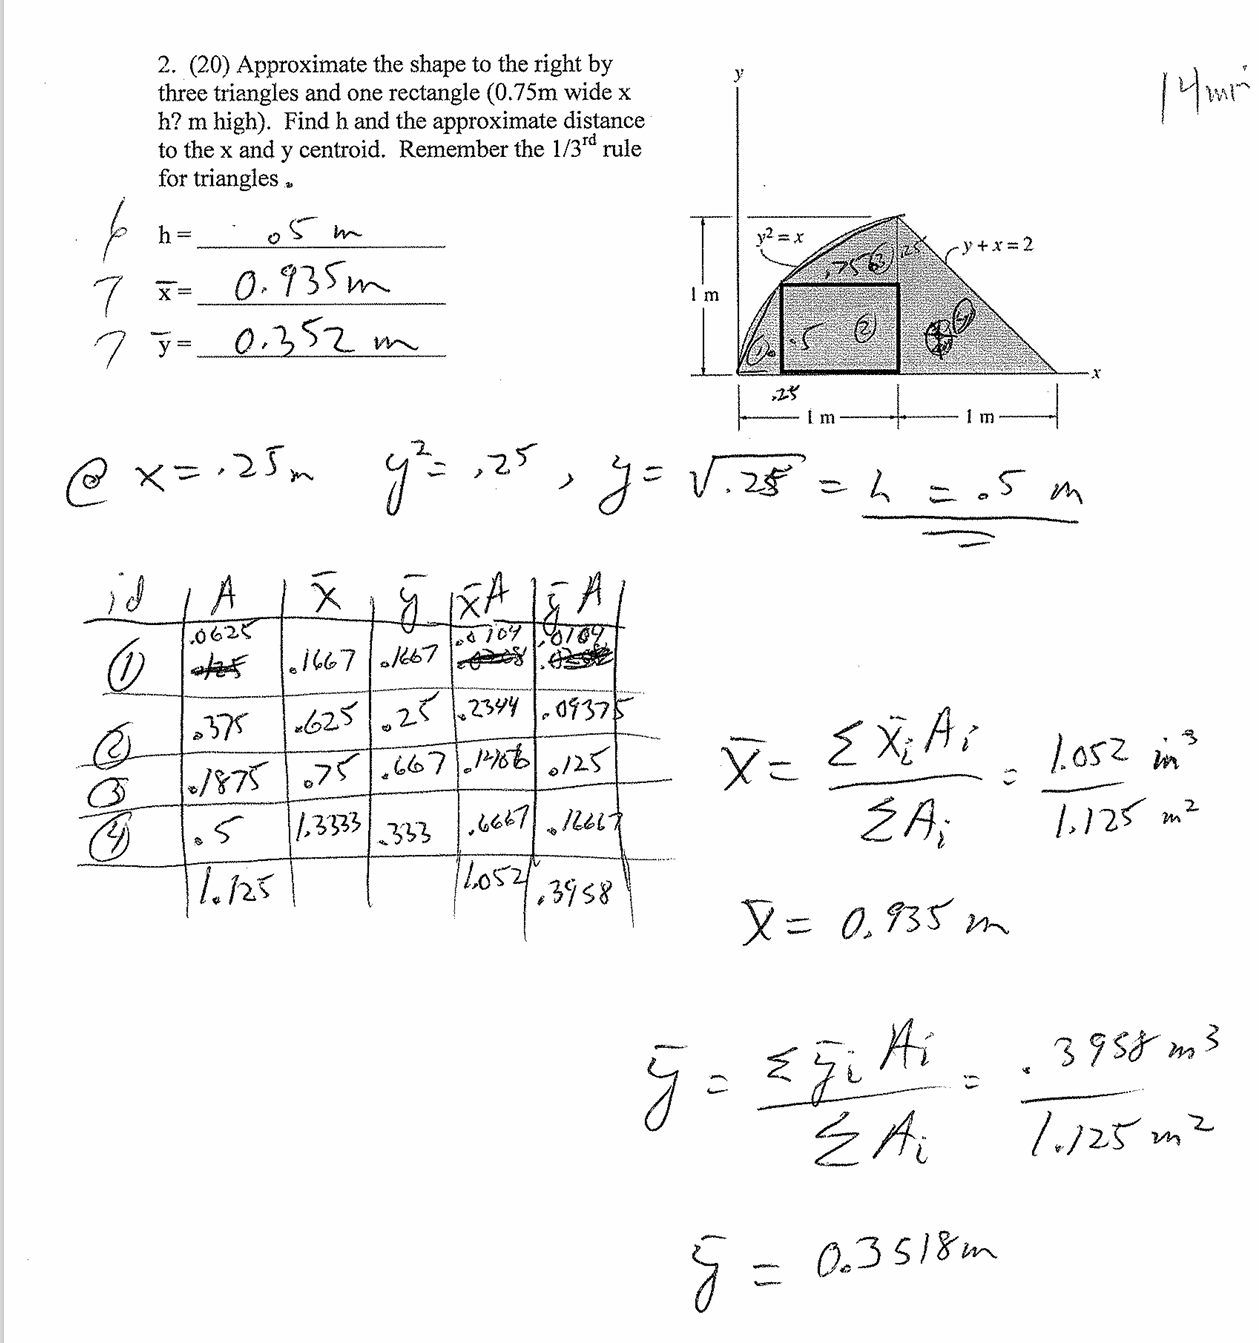 2. (20) Approximate the shape to the right by
three triangles and one rectangle (0.75m wide x
h? m high). Find h and the approximate distance
to the x and y centroid. Remember the 1/3rd rule
for triangles.
14 min
6 h = .5 m
7 x̄ = 0.935 m
7 ȳ = 0.352 m
y
y² = x
y + x = 2
.75 ③ .25
1 m
① .5 ②
④
x
.25
1 m 1 m
@ x = .25 m y² = .25, y = √.25 = h = .5 m
id A x̄ ȳ x̄A ȳA
① .0625 .1667 .1667 .0104 .0104
② .375 .625 .25 .2344 .09375
③ .1875 .75 .667 .1406 .125
④ .5 1.3333 .333 .6667 .16667
1.125 1.052 .3958
x̄ = Σx̄ᵢAᵢ / ΣAᵢ = 1.052 in³ / 1.125 m²
x̄ = 0.935 m
ȳ = ΣȳᵢAᵢ / ΣAᵢ = .3958 m³ / 1.125 m²
ȳ = 0.3518 m